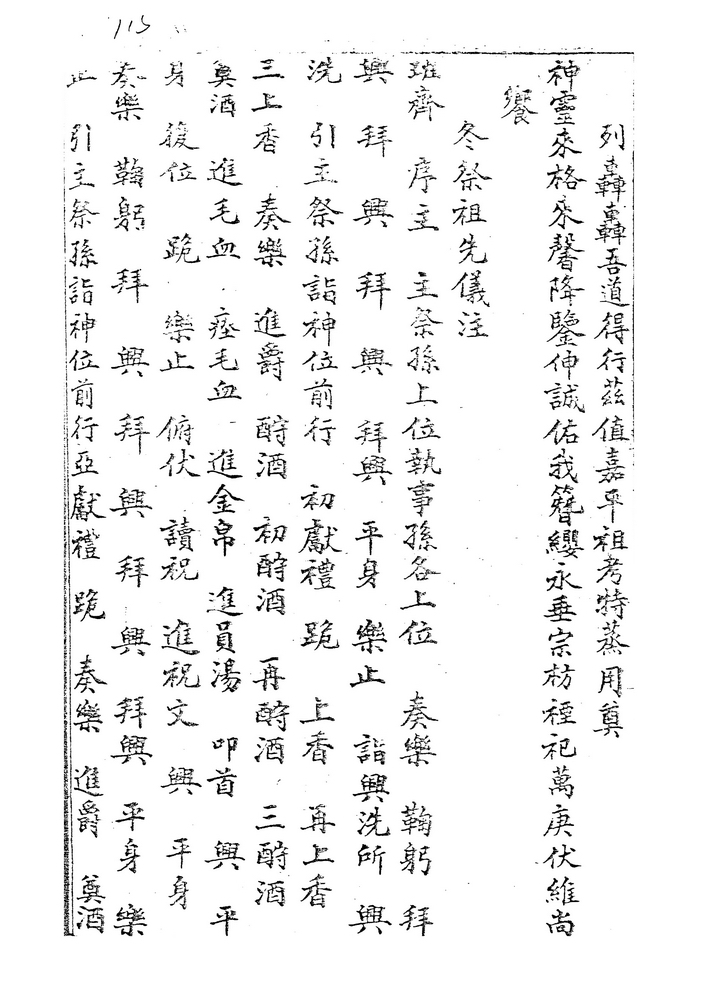 115
列轟轟吾道得行茲值嘉平祖考特蒸用奠
神靈來格來馨降鑒伸誠佑我簪纓永垂宗枋禋祀萬庚伏維尚
饗
冬祭祖先儀注
班齊 序主 主祭孫上位執事孫各上位 奏樂 鞠躬 拜
興 拜 興 拜 興 拜興 平身 樂止 詣興洗所 興
洗 引主祭孫詣神位前行 初獻禮 跪 上香 再上香
三上香 奏樂 進爵 酹酒 初酹酒 再酹酒 三酹酒
奠酒 進毛血 瘞毛血 進金帛 進員湯 叩首 興 平
身 復位 跪 樂止 俯伏 讀祝 進祝文 興 平身
奏樂 鞠躬 拜 興 拜 興 拜 興 拜興 平身 樂
止 引主祭孫詣神位前行亞獻禮 跪 奏樂 進爵 奠酒